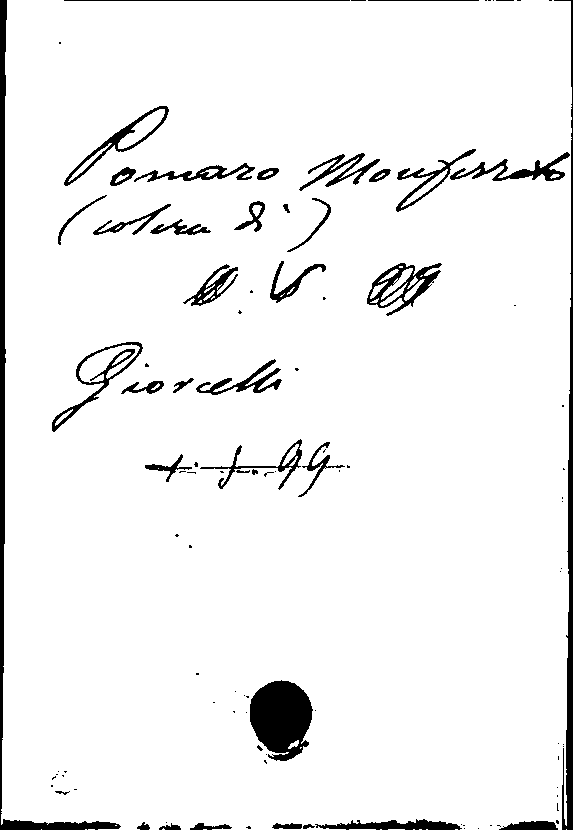 Pomaro Monferrato
(colera di)
V.
Giorcelli
99